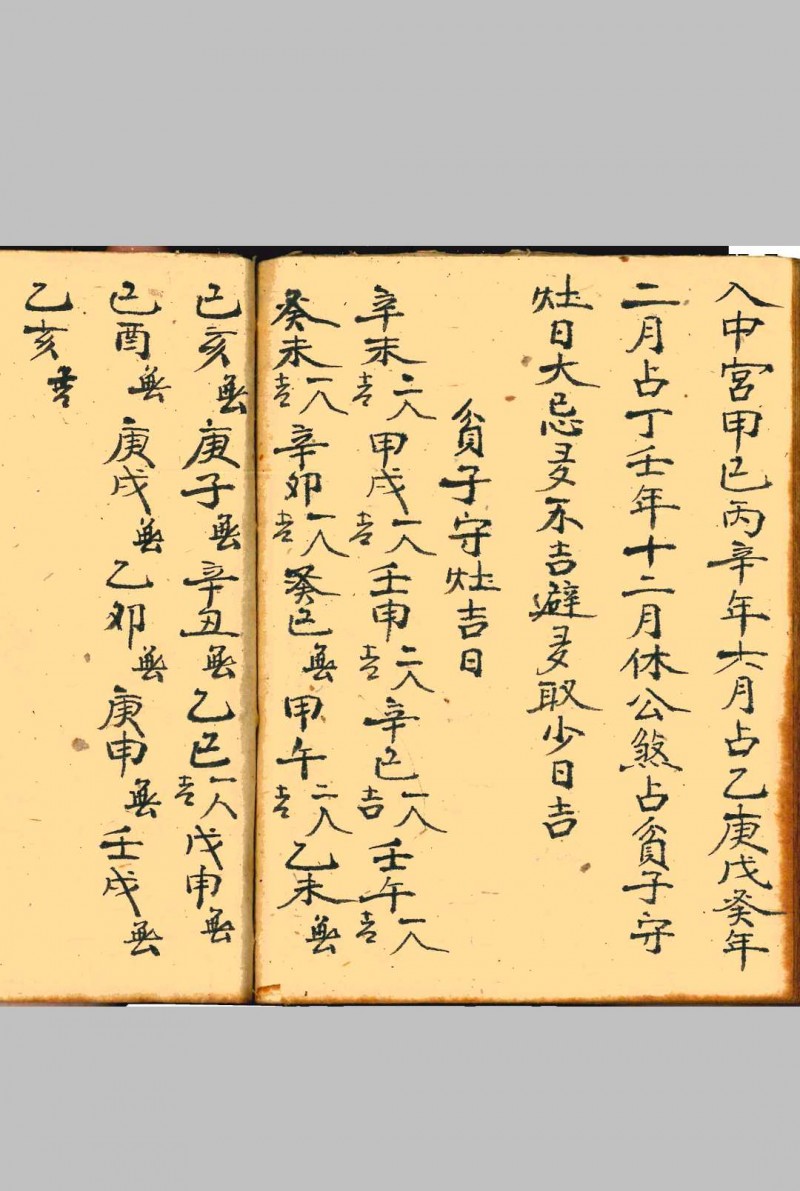 入中宮甲己丙辛年六月占乙庚戊癸年
二月占丁壬年十二月休公煞占貧子守
灶日大忌多不吉避多取少日吉
貧子守灶吉日
辛未二人吉甲戌一人吉壬申二人吉辛巳一人吉壬午一人吉
癸未一人吉辛卯一人吉癸巳無甲午二人吉乙未無
己亥無庚子無辛丑無乙巳一人吉戊申無
己酉無庚戌無乙卯無庚申無壬戌無
乙亥